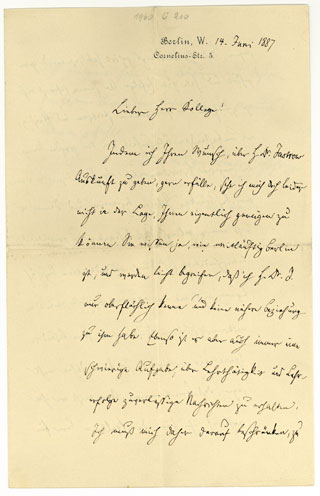 1960 G 200
Berlin, W. 14. Juni 1887
Cornelius-Str. 5.
Lieber Herr Kollege!
Indem ich Ihren Wunsch, über H. Dr. Jastrow
Auskunft zu geben, gern erfülle, sehe ich mich doch leider
nicht in der Lage, Ihnen eigentlich genügen zu
können. Sie wissen ja wie weitläufig Berlin
ist, und werden leicht begreifen, daß ich H. Dr. J.
nur oberflächlich kenne und keine nähere Beziehung
zu ihm habe. Ebenso ist es aber auch immer eine
schwierige Aufgabe, über Lehrthätigkeit und Lehr-
erfolge zuverlässige Nachrichten zu erhalten.
Ich muß mich daher darauf beschränken, zu